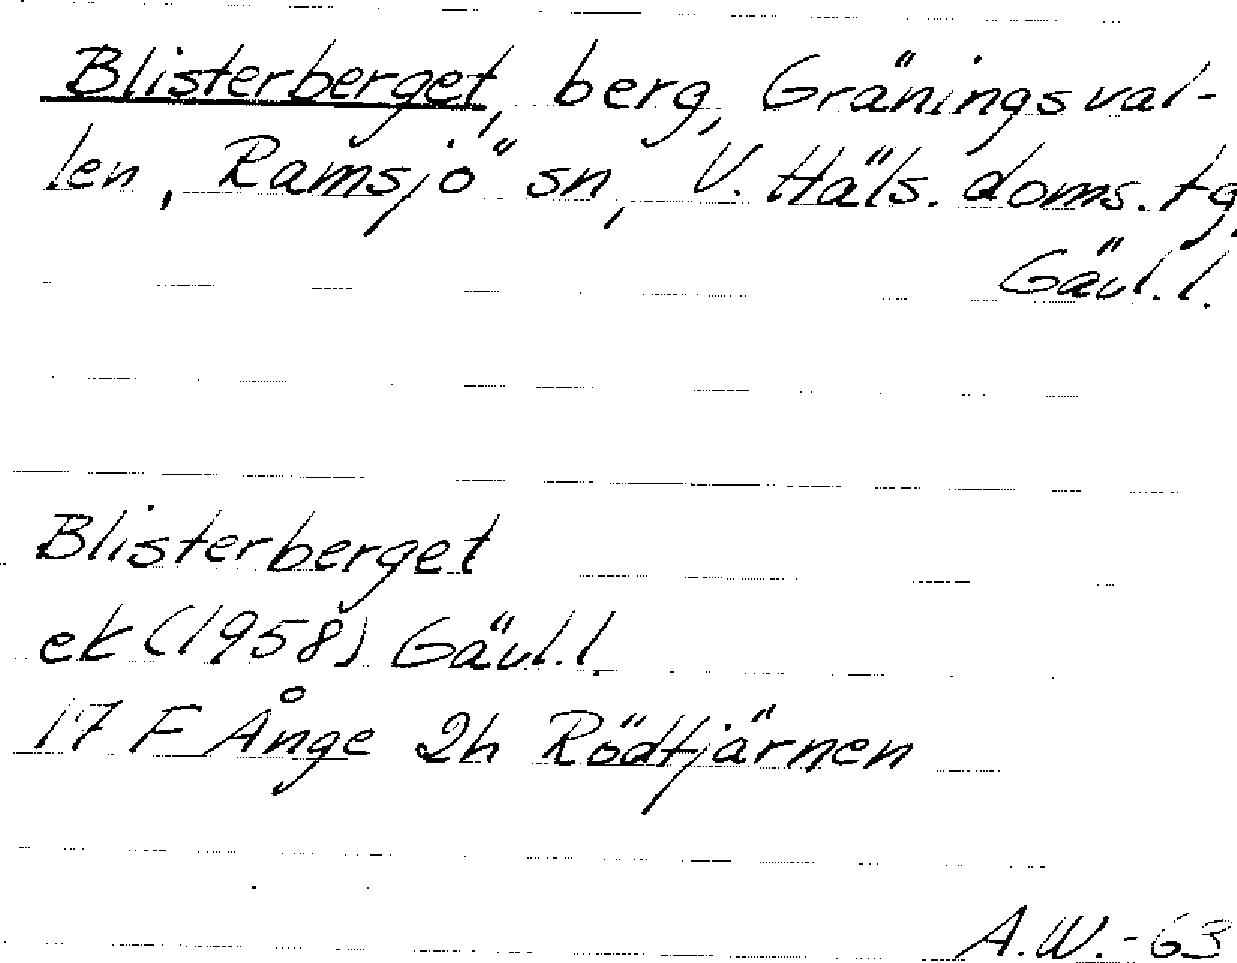 Blisterberget, berg, Gräningsval-
len, Ramsjö sn, V. Häls. doms. tg
Gävl. l.
Blisterberget
ek (1958) Gävl. l.
17 F Ånge 2h Rödtjärnen
A.W.-63